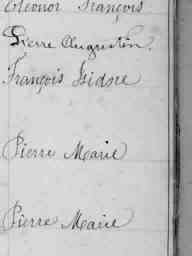 Eleonor François
Pierre Augustin
François Isidore
Pierre Marie
Pierre Marie